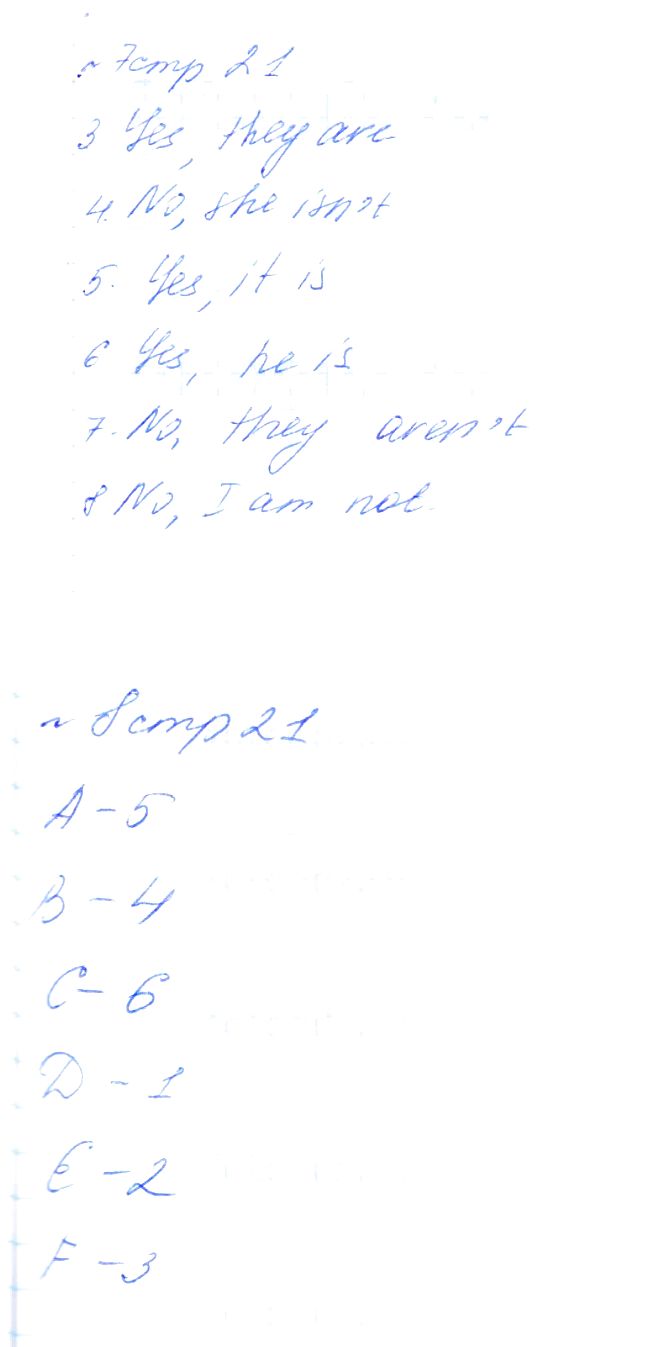 ~ 7 стр 21
3 Yes, they are
4. No, she isn't
5. Yes, it is
6 Yes, he is
7. No, they aren't
8 No, I am not.
~ 8 стр 21
A - 5
B - 4
C - 6
D - 1
E - 2
F - 3